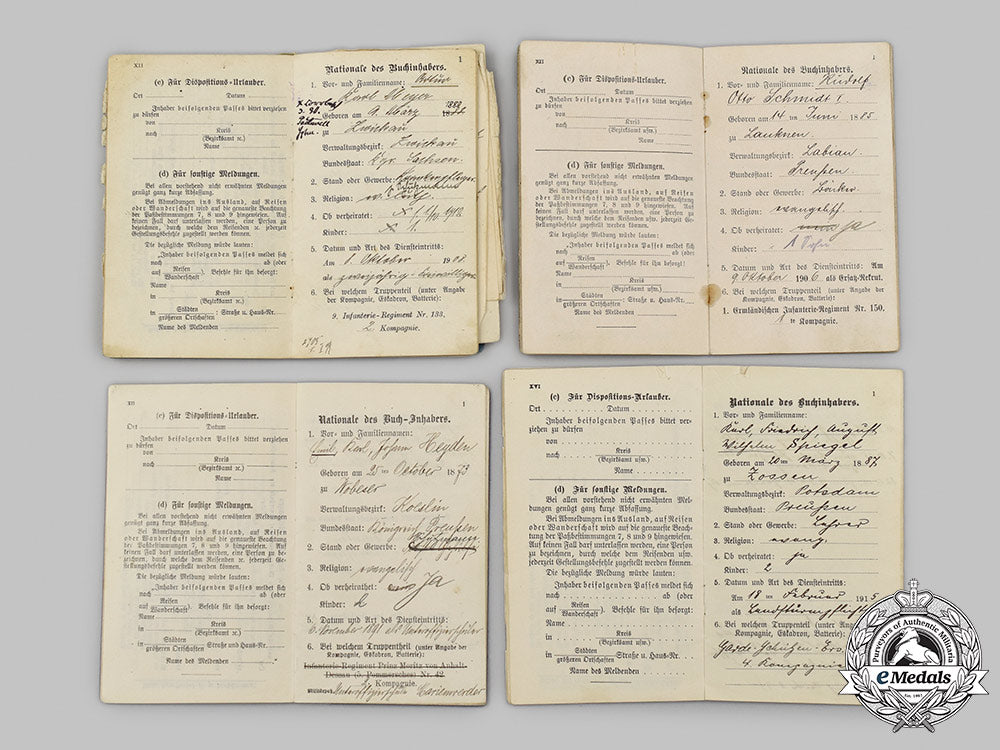 XII
(c) Für Dispositions-Urlauber.
Ort Datum
Inhaber beifolgenden Passes bittet verziehen
zu dürfen
von
nach
Kreis
(Bezirksamt ꝛc.)
Name
(d) Für sonstige Meldungen.
Bei allen vorstehend nicht erwähnten Meldungen
genügt ganz kurze Abfassung.
Bei Abmeldungen ins Ausland, auf Reisen
oder Wanderschaft wird auf die genaueste Beachtung
der Paßbestimmungen 7, 8 und 9 hingewiesen. Auf
keinen Fall darf unterlassen werden, eine Person zu
bezeichnen, durch welche dem Reisenden ꝛc. jederzeit
Gestellungsbefehle zugestellt werden können.
Die bezügliche Meldung würde lauten:
Inhaber beifolgenden Passes meldet sich
nach ab (oder
auf Reisen
Wanderschaft). Befehle für ihn besorgt:
in
Kreis
(Bezirksamt ꝛc.)
in
Städten
größeren Ortschaften: Straße u. Haus-Nr.
Name des Meldenden
1
Nationale des Buchinhabers.
1. Vor- und Familienname: Artur
Karl Meyer
Geboren am 9. März 1888
zu Zwickau
Verwaltungsbezirk: Zwickau
Bundesstaat: Kgr. Sachsen.
2. Stand oder Gewerbe:
3. Religion: ev. luth.
4. Ob verheiratet: 1918
Kinder:
5. Datum und Art des Diensteintritts:
Am 1. Oktober 1908
als zweijährig-freiwilliger
6. Bei welchem Truppenteil (unter Angabe
der Kompagnie, Eskadron, Batterie):
9. Infanterie-Regiment Nr. 133.
2. Kompagnie.
XII
(c) Für Dispositions-Urlauber.
Ort Datum
Inhaber beifolgenden Passes bittet verziehen
zu dürfen
von
nach
Kreis
(Bezirksamt usw.)
Name
(d) Für sonstige Meldungen.
Bei allen vorstehend nicht erwähnten Meldungen
genügt ganz kurze Abfassung.
Bei Abmeldungen ins Ausland, auf Reisen
oder Wanderschaft wird auf die genaueste Beachtung
der Paßbestimmungen 7, 8 und 9 hingewiesen. Auf
keinen Fall darf unterlassen werden, eine Person zu
bezeichnen, durch welche dem Reisenden usw. jederzeit
Gestellungsbefehle zugestellt werden können.
Die bezügliche Meldung würde lauten:
Inhaber beifolgenden Passes meldet sich
nach ab (oder
auf Reisen
Wanderschaft). Befehle für ihn besorgt:
in
Kreis
(Bezirksamt usw.)
in
Städten
größeren Ortschaften: Straße u. Haus-Nr.
Name des Meldenden
1
Nationale des Buchinhabers.
1. Vor- und Familienname: Rudolf
Otto Schmidt I.
Geboren am 14ten Juni 1885
zu Lauknen.
Verwaltungsbezirk: Labiau.
Bundesstaat: Preußen
2. Stand oder Gewerbe: Bäcker.
3. Religion: evangelisch.
4. Ob verheiratet: nein ja
Kinder: 1 Sohn
5. Datum und Art des Diensteintritts: Am
9. Oktober 1906 als Ersatz-Rekrut.
6. Bei welchem Truppenteil (unter Angabe der
Kompagnie, Eskadron, Batterie):
1. Ermländischen Infanterie-Regiment Nr. 150.
1te Kompagnie.
XII
(c) Für Dispositions-Urlauber.
Ort Datum
Inhaber beifolgenden Passes bittet verziehen
zu dürfen
von
nach
Kreis
(Bezirksamt ꝛc.)
Name
(d) Für sonstige Meldungen.
Bei allen vorstehend nicht erwähnten Meldungen
genügt ganz kurze Abfassung.
Bei Abmeldungen ins Ausland, auf Reisen
oder Wanderschaft wird auf die genaueste Beachtung
der Paßbestimmungen 7, 8 und 9 hingewiesen. Auf
keinen Fall darf unterlassen werden, eine Person zu
bezeichnen, durch welche dem Reisenden ꝛc. jederzeit
Gestellungsbefehle zugestellt werden können.
Die bezügliche Meldung würde lauten:
Inhaber beifolgenden Passes meldet sich
nach ab (oder
auf Reisen
Wanderschaft). Befehle für ihn besorgt:
in
Kreis
(Bezirksamt ꝛc.)
in
Städten
größeren Ortschaften: Straße und Haus-Nr.
Name des Meldenden
1
Nationale des Buch-Inhabers.
1. Vor- und Familiennamen:
Emil, Karl, Johann Heyden
Geboren am 25ten October 1873
zu Nobeser
Verwaltungsbezirk: Köslin
Bundesstaat: Königreich Preußen
2. Stand oder Gewerbe:
3. Religion: evangelisch
4. Ob verheirathet: ja
Kinder:
5. Datum und Art des Diensteintritts:
6. November 1891 als Unteroffizierschüler
6. Bei welchem Truppentheil (unter Angabe der
Kompagnie, Eskadron, Batterie):
Infanterie-Regiment Prinz Moritz von Anhalt-
Dessau (5. Pommersches) Nr. 42
Kompagnie.
Unteroffizierschule Marienwerder
XVI
(c) Für Dispositions-Urlauber.
Ort Datum
Inhaber beifolgenden Passes bittet verziehen
zu dürfen
von
nach
Kreis
(Bezirksamt usw.)
Name
(d) Für sonstige Meldungen.
Bei allen vorstehend nicht erwähnten Meldungen
genügt ganz kurze Abfassung.
Bei Abmeldungen ins Ausland, auf Reisen
oder Wanderschaft wird auf die genaueste Beachtung
der Paßbestimmungen 7, 8 und 9 hingewiesen. Auf
keinen Fall darf unterlassen werden, eine Person zu
bezeichnen, durch welche dem Reisenden usw. jederzeit
Gestellungsbefehle zugestellt werden können.
Die bezügliche Meldung würde lauten:
Inhaber beifolgenden Passes meldet sich
nach ab (oder
auf Reisen
Wanderschaft). Befehle für ihn besorgt:
in
Kreis
(Bezirksamt usw.)
in
Städten
größeren Ortschaften: Straße u. Haus-Nr.
Name des Meldenden
1
Nationale des Buchinhabers.
1. Vor- und Familienname:
Karl, Friedrich, August
Wilhelm Spiegel
Geboren am 20ten März 1887
zu Zossen
Verwaltungsbezirk: Potsdam
Bundesstaat: Preußen
2. Stand oder Gewerbe: Lehrer
3. Religion: evang.
4. Ob verheiratet: ja
Kinder: 2
5. Datum und Art des Diensteintritts:
Am 18ten Februar 1915
als Landsturmpflicht
6. Bei welchem Truppenteil (unter Angabe
der Kompagnie, Eskadron, Batterie):
Garde-Schützen-Ers.
4. Kompagnie
Purveyors of Authentic Militaria
eMedals
Est. 1967